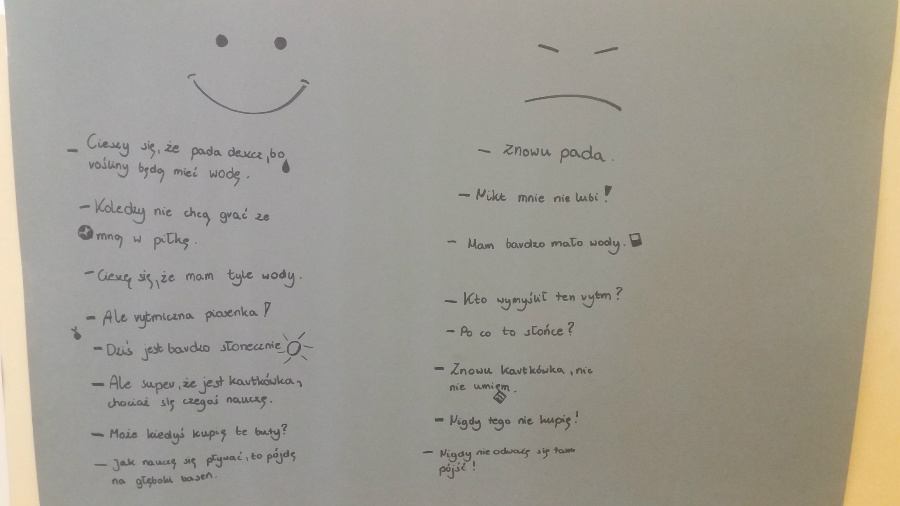 – Cieszy się, że pada deszcz, bo
rośliny będą mieć wodę.
– Koledzy nie chcą grać ze
mną w piłkę.
– Cieszę się, że mam tyle wody.
– Ale rytmiczna piosenka!
– Dziś jest bardzo słonecznie
– Ale super, że jest kartkówka,
chociaż się czegoś nauczę.
– Może kiedyś kupię te buty?
– Jak nauczę się pływać, to pójdę
na głęboki basen.
– Znowu pada.
– Nikt mnie nie lubi!
– Mam bardzo mało wody.
– Kto wymyślił ten rytm?
– Po co to słońce?
– Znowu kartkówka, nic
nie umiem.
– Nigdy tego nie kupię!
– Nigdy nie odważę się tam
pójść!